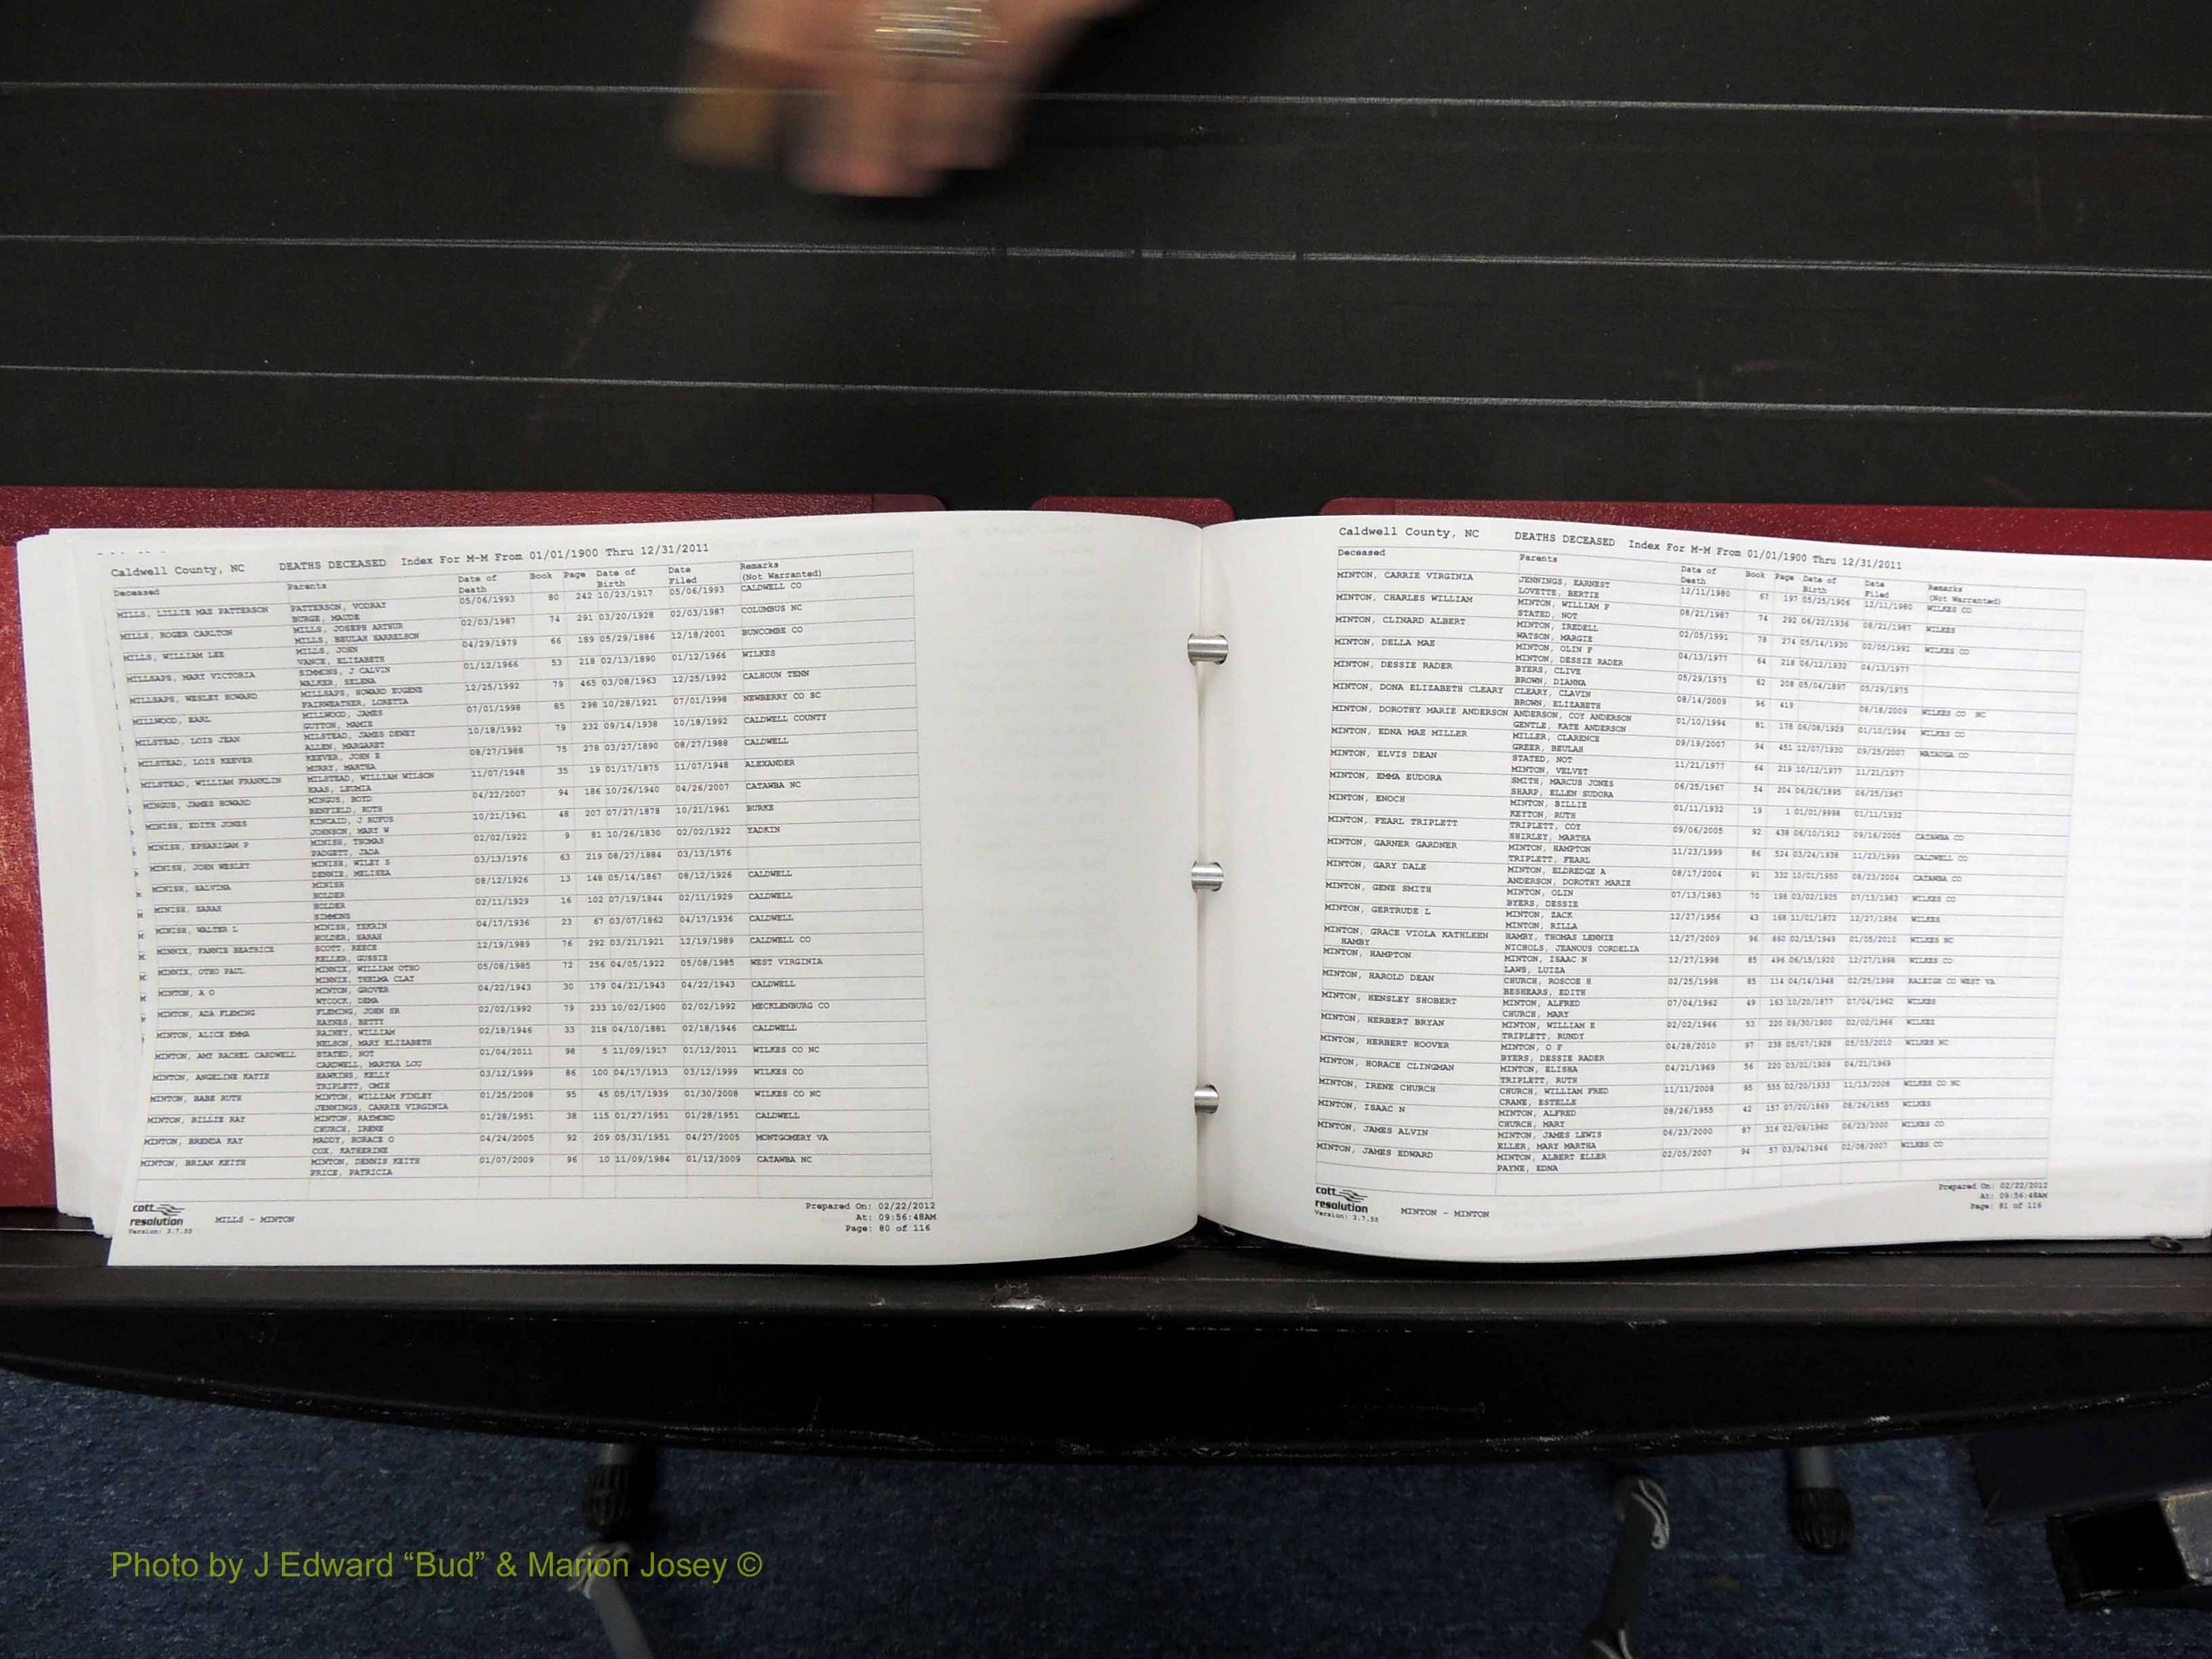 Caldwell County, NC DEATHS DECEASED Index For M-M From 01/01/1900 Thru 12/31/2011
Deceased Parents Date of Death Book Page Date of Birth Date Filed Remarks (Not Warranted)
MILLS, LILLIE MAE PATTERSON PATTERSON, VODRAY 05/06/1993 80 242 10/23/1917 05/06/1993 CALDWELL CO
BURGE, MAUDE
MILLS, ROGER CARLTON MILLS, JOSEPH ARTHUR 02/03/1987 74 291 03/20/1928 02/03/1987 COLUMBUS NC
MILLS, BEULAH HARRELSON
MILLS, WILLIAM LEE MILLS, JOHN 04/29/1979 66 189 05/29/1886 12/18/2001 BUNCOMBE CO
VANCE, ELIZABETH
MILLSAPS, MARY VICTORIA SIMMONS, J CALVIN 01/12/1966 53 218 02/13/1890 01/12/1966 WILKES
WALKER, SELENA
MILLSAPS, WESLEY HOWARD MILLSAPS, HOWARD EUGENE 12/25/1992 79 465 03/08/1963 12/25/1992 CALHOUN TENN
FAIRWEATHER, LORETTA
MILLWOOD, EARL MILLWOOD, JAMES 07/01/1998 85 298 10/28/1921 07/01/1998 NEWBERRY CO SC
GUYTON, MAMIE
MILSTEAD, LOIS JEAN MILSTEAD, JAMES DEWEY 10/18/1992 79 232 09/14/1938 10/18/1992 CALDWELL COUNTY
ALLEN, MARGARET
MILSTEAD, LOIS KEEVER KEEVER, JOHN E 08/27/1988 75 278 03/27/1890 08/27/1988 CALDWELL
MURRY, MARTHA
MILSTEAD, WILLIAM FRANKLIN MILSTEAD, WILLIAM WILSON 11/07/1948 35 19 01/17/1875 11/07/1948 ALEXANDER
HAAS, LEUMIA
MINGUS, JAMES HOWARD MINGUS, BOYD 04/22/2007 94 186 10/26/1940 04/26/2007 CATAWBA NC
BENFIELD, RUTH
MINISH, EDITH JONES KINCAID, J RUFUS 10/21/1961 48 207 07/27/1878 10/21/1961 BURKE
JOHNSON, MARY W
MINISH, EPHARIGAM P MINISH, THOMAS 02/02/1922 9 81 10/26/1830 02/02/1922 YADKIN
PADGETT, JADA
MINISH, JOHN WESLEY MINISH, WILEY S 03/13/1976 63 219 08/27/1884 03/13/1976
DENNIE, MELISEA
MINISH, SALVINA MINISH 08/12/1926 13 148 05/14/1867 08/12/1926 CALDWELL
HOLDER
MINISH, SARAH HOLDER 02/11/1929 16 102 07/19/1844 02/11/1929 CALDWELL
SIMMONS
MINISH, WALTER L MINISH, YEKRIN 04/17/1936 23 67 03/07/1862 04/17/1936 CALDWELL
HOLDER, SARAH
MINNIX, FANNIE BEATRICE SCOTT, REECE 12/19/1989 76 292 03/21/1921 12/19/1989 CALDWELL CO
KELLER, GUSSIE
MINNIX, OTHO PAUL MINNIX, WILLIAM OTHO 05/08/1985 72 256 04/05/1922 05/08/1985 WEST VIRGINIA
MINNIX, THELMA CLAY
MINTON, A O MINTON, GROVER 04/22/1943 30 179 04/21/1943 04/22/1943 CALDWELL
WYCOCK, DEMA
MINTON, ADA FLEMING FLEMING, JOHN SR 02/02/1992 79 233 10/02/1900 02/02/1992 MECKLENBURG CO
HAYNES, BETTY
MINTON, ALICE EMMA RAINEY, WILLIAM 02/18/1946 33 218 04/10/1881 02/18/1946 CALDWELL
NELSON, MARY ELIZABETH
MINTON, AMY RACHEL CARDWELL STATED, NOT 01/04/2011 98 5 11/09/1917 01/12/2011 WILKES CO NC
CARDWELL, MARTHA LOU
MINTON, ANGELINE KATIE HAWKINS, KELLY 03/12/1999 86 100 04/17/1913 03/12/1999 WILKES CO
TRIPLETT, OMIE
MINTON, BABE RUTH MINTON, WILLIAM FINLEY 01/25/2008 95 45 05/17/1939 01/30/2008 WILKES CO NC
JENNINGS, CARRIE VIRGINIA
MINTON, BILLIE RAY MINTON, RAYMOND 01/28/1951 38 115 01/27/1951 01/28/1951 CALDWELL
CHURCH, IRENE
MINTON, BRENDA KAY MADDY, HORACE O 04/24/2005 92 209 05/31/1951 04/27/2005 MONTGOMERY VA
COX, KATHERINE
MINTON, BRIAN KEITH MINTON, DENNIS KEITH 01/07/2009 96 10 11/09/1984 01/12/2009 CATAWBA NC
PRICE, PATRICIA
cott resolution Version: 3.7.55
MILLS - MINTON
Prepared On: 02/22/2012
At: 09:56:48AM
Page: 80 of 116
Caldwell County, NC DEATHS DECEASED Index For M-M From 01/01/1900 Thru 12/31/2011
Deceased Parents Date of Death Book Page Date of Birth Date Filed Remarks (Not Warranted)
MINTON, CARRIE VIRGINIA JENNINGS, EARNEST 12/11/1980 67 197 05/25/1906 12/11/1980 WILKES CO
LOVETTE, BERTIE
MINTON, CHARLES WILLIAM MINTON, WILLIAM F 08/21/1987 74 292 06/22/1936 08/21/1987 WILKES
STATED, NOT
MINTON, CLINARD ALBERT MINTON, IREDELL 02/05/1991 78 274 05/14/1930 02/05/1991 WILKES CO
WATSON, MARGIE
MINTON, DELLA MAE MINTON, OLIN F 04/13/1977 64 218 06/12/1932 04/13/1977
MINTON, DESSIE RADER
MINTON, DESSIE RADER BYERS, CLIVE 05/29/1975 62 208 05/04/1897 05/29/1975
BROWN, DIANNA
MINTON, DONA ELIZABETH CLEARY CLEARY, CLAVIN 08/14/2009 96 419 08/18/2009 WILKES CO NC
BROWN, ELIZABETH
MINTON, DOROTHY MARIE ANDERSON ANDERSON, COY ANDERSON 01/10/1994 81 178 06/08/1929 01/10/1994 WILKES CO
GENTLE, KATE ANDERSON
MINTON, EDNA MAE MILLER MILLER, CLARENCE 09/19/2007 94 451 12/07/1930 09/25/2007 WATAUGA CO
GREER, BEULAH
MINTON, ELVIS DEAN STATED, NOT 11/21/1977 64 219 10/12/1977 11/21/1977
MINTON, VELVET
MINTON, EMMA EUDORA SMITH, MARCUS JONES 06/25/1967 54 204 06/26/1895 06/25/1967
SHARP, ELLEN SUDORA
MINTON, ENOCH MINTON, BILLIE 01/11/1932 19 1 01/01/9998 01/11/1932
KEYTON, RUTH
MINTON, FEARL TRIPLETT TRIPLETT, COY 09/06/2005 92 438 06/10/1912 09/16/2005 CATAWBA CO
SHIRLEY, MARTHA
MINTON, GARNER GARDNER MINTON, HAMPTON 11/23/1999 86 524 03/24/1938 11/23/1999 CALDWELL CO
TRIPLETT, FEARL
MINTON, GARY DALE MINTON, ELDREDGE A 08/17/2004 91 332 10/01/1950 08/23/2004 CATAWBA CO
ANDERSON, DOROTHY MARIE
MINTON, GENE SMITH MINTON, OLIN 07/13/1983 70 198 03/02/1925 07/13/1983 WILKES CO
BYERS, DESSIE
MINTON, GERTRUDE L MINTON, ZACK 12/27/1956 43 168 11/01/1872 12/27/1956 WILKES
MINTON, RILLA
MINTON, GRACE VIOLA KATHLEEN HAMBY, THOMAS LENNIE 12/27/2009 96 660 02/15/1949 01/05/2010 WILKES NC
HAMBY NICHOLS, JEANOUS CORDELIA
MINTON, HAMPTON MINTON, ISAAC N 12/27/1998 85 496 06/15/1920 12/27/1998 WILKES CO
LAWS, LUIZA
MINTON, HAROLD DEAN CHURCH, ROSCOE H 02/25/1998 85 114 04/14/1948 02/25/1998 RALEIGH CO WEST VA
BESHEARS, EDITH
MINTON, HENSLEY SHOBERT MINTON, ALFRED 07/04/1962 49 163 10/20/1877 07/04/1962 WILKES
CHURCH, MARY
MINTON, HERBERT BRYAN MINTON, WILLIAM E 02/02/1966 53 220 09/30/1900 02/02/1966 WILKES
TRIPLETT, RUNDY
MINTON, HERBERT HOOVER MINTON, O F 04/28/2010 97 238 05/07/1928 05/03/2010 WILKES NC
BYERS, DESSIE RADER
MINTON, HORACE CLINGMAN MINTON, ELISHA 04/21/1969 56 220 03/01/1909 04/21/1969
TRIPLETT, RUTH
MINTON, IRENE CHURCH CHURCH, WILLIAM FRED 11/11/2008 95 555 02/20/1933 11/13/2008 WILKES CO NC
CRANE, ESTELLE
MINTON, ISAAC N MINTON, ALFRED 08/26/1955 42 157 07/20/1869 08/26/1955 WILKES
CHURCH, MARY
MINTON, JAMES ALVIN MINTON, JAMES LEWIS 06/23/2000 87 316 02/09/1960 06/23/2000 WILKES CO
ELLER, MARY MARTHA
MINTON, JAMES EDWARD MINTON, ALBERT ELLER 02/05/2007 94 57 03/04/1946 02/08/2007 WILKES CO
PAYNE, EDNA
cott resolution Version: 3.7.55
MINTON - MINTON
Prepared On: 02/22/2012
At: 09:56:48AM
Page: 81 of 116
Photo by J Edward “Bud” & Marion Josey ©